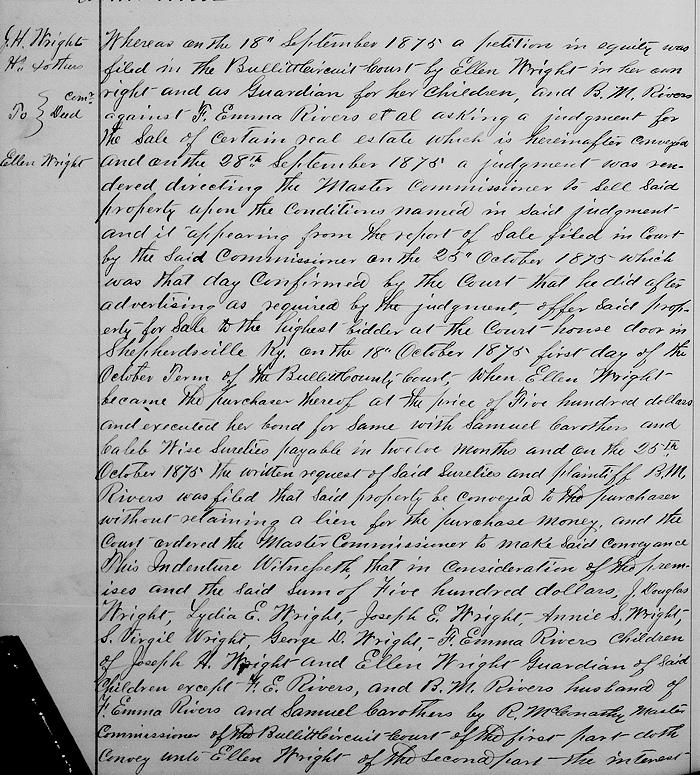 J. H. Wright
Hrs & others
To } Comr Deed
Ellen Wright
Whereas on the 18" September 1875 a petition in equity was
filed in the Bullitt Circuit Court by Ellen Wright in her own
right and as Guardian for her children, and B. M. Rivers
against F. Emma Rivers et al asking a judgment for
the Sale of Certain real estate which is hereinafter conveyed
and on the 28th September 1875 a judgment was ren-
dered directing the Master Commissioner to Sell Said
property upon the Conditions named in said judgment
and it appearing from the report of Sale filed in Court
by the Said Commissioner on the 25" October 1875 which
was that day Confirmed by the Court that he did after
advertising as required by the judgment, offer said prop-
erty for Sale to the highest bidder at the Court house door in
Shepherdsville Ky. on the 18" October 1875 first day of the
October Term of the Bullitt County Court, When Ellen Wright
became the purchaser thereof at the price of Five hundred dollars
and executed her bond for same with Samuel Carothers and
Caleb Wise Sureties payable in twelve months and on the 25th
October 1875 the written request of said Sureties and plaintiff B. M.
Rivers was filed that Said property be conveyed to the purchaser
without retaining a lien for the purchase money, and the
Court ordered the Master Commissioner to make said Conveyance
This Indenture Witnesseth, that in Consideration of the prem-
ises and the said sum of Five hundred dollars, J. Douglas
Wright, Lydia E. Wright, Joseph E. Wright, Annie S. Wright,
S. Virgil Wright George D. Wright, F. Emma Rivers Children
of Joseph H. Wright and Ellen Wright Guardian of Said
Children except F. E. Rivers, and B. M. Rivers husband of
F. Emma Rivers and Samuel Carothers by R. McConathy Master
Commissioner of the Bullitt Circuit Court of the first part doth
Convey unto Ellen Wright of the Second part the interest